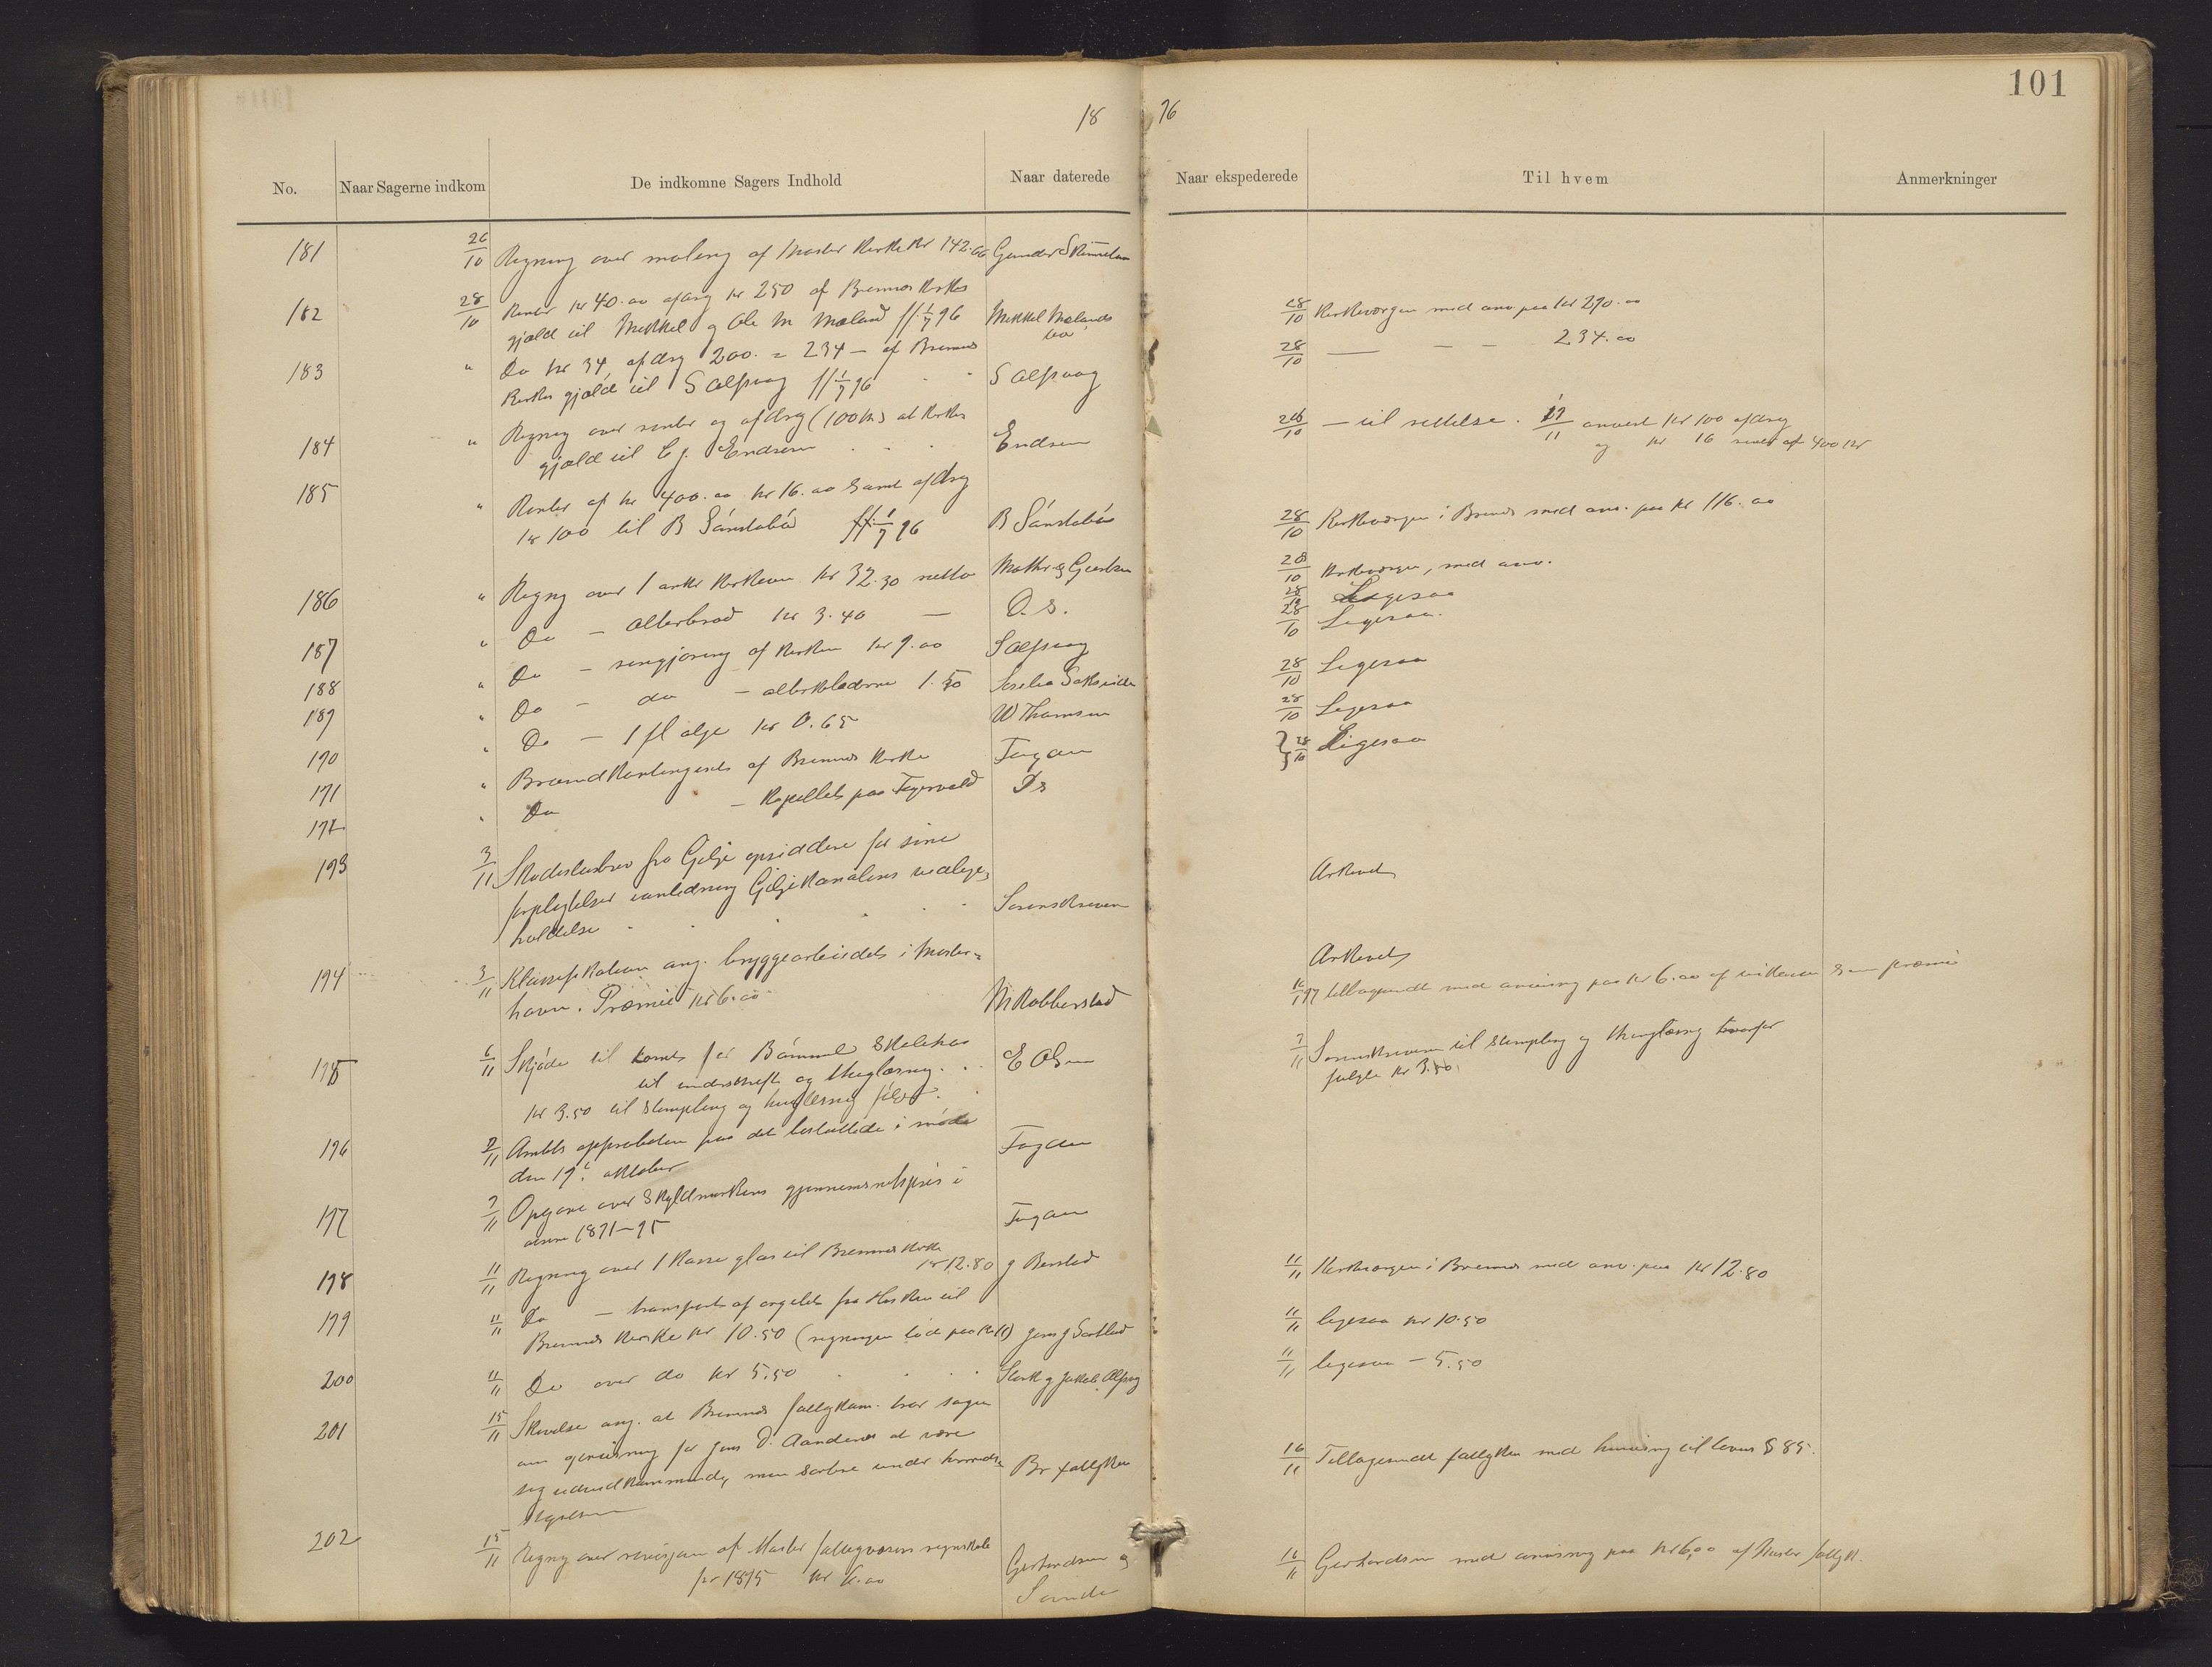 101
18 96
No. Naar Sagerne indkom De indkomne Sagers Indhold Naar daterede Naar ekspederede Til hvem Anmerkninger
181 26/10 Regning over maling af Moster Kirke Kr 142.66 Gunder
182 28/10 Renter kr 40.00 afdrag kr 250 af Bremnes Kirkes
gjæld til Mikkel og Ole M Mæland 1/7 96 Mikkel Mælands
28/10 Kirkeværgen med anv paa kr 290.00
183 " Do kr 34, afdrag 200. = 234 - af Bremnes
Kirkes gjæld til S Alsvaag 1/7 96 S Alsvaag
28/10 — — — 234.00
184 " Regning over renter og afdrag (100 kr) at Kirkes
gjæld til E J. Endresen Endresen
28/10 — til rettelse. 17/11 anvist kr 100 afdrag
og kr 16 renter af 400 kr
185 " Renter af kr 400.00 kr 16.00 samt afdrag
kr 100 til B Sørstabø 1/7 96 B Sørstabø
28/10 Kirkeværgen i Bremnes med anv. paa kr 116.00
186 " Regng over 1 anker Kirkevin kr 32.30 netto
28/10 Kirkeværgen, med anv.
187 " Do - alterbrød kr 3.40 — D.s.
28/10 Ligesaa
188 " Do - rengjøring af Kirken kr 9.00 S Alsvaag
28/10 Ligesaa.
189 " Do - do - alterklæderne 1.50
28/10 Ligesaa
190 " Do - 1 fl olje kr 0.65 W Thomsen
28/10 Ligesaa
191 " Brandkontingent af Bremnes Kirke Fogden
192 " Do - Kapellet paa Ds
28/10 Ligesaa
193 3/11 Skadesløsbrev fra Gilje opsiddere for sine
forpligtelser i anledning Giljekanalens vedlige-
holdelse Sorenskriveren
Arkivet
194 3/11 Klassifikation ang. bryggearbeidet i Moster-
havn. Præmie kr 6.00 M Robberstad
Arkivet
tilbagesendt med anvisning paa kr 6.00 af som præmie
195 6/11 Skjøde til tomt for Bømmel Skolehus
til underskrift og thinglæsning. E Olsen
kr 3.50 til stempling og thinglæsning følger.
7/11 Sorenskriveren til stempling og thinglæsning hvorfor
følger kr 3.50
196 7/11 Amtets approbation paa det besluttede i møde
den 19de oktober Fogden
197 7/11 Opgave over Skyldmarkens gjennemsnitspris i
aarene 1891-95 Fogden
198 11/11 Regning over 1 Kasse glas til Bremnes Kirke
kr 12.80
11/11 Kirkeværgen i Bremnes med anv. paa kr 12.80
199 11/11 Do — transport af orgelet fra Hisken til
Bremnes Kirke kr 10.50 (regningen lød paa kr 11)
11/11 ligesaa kr 10.50
200 11/11 Do over do kr 5.50
11/11 ligesaa - 5.50
201 15/11 Skrivelse ang. at Bremnes fattigkom. har sagen
om for Jens D. at være
sig uvedkommende, men sortere under herreds-
styrelsen Br fattigkom
16/11 Tilbagesendt fattigkom med henvisning til lovens § 85.
202 15/11 Regng over revisjon af Moster fattigvæsens regnskab
for 1895 kr 6.00 Gerhardsen og
Sønde
16/11 Gerhardsen med anvisning paa kr 6,00 af Moster fattigk.